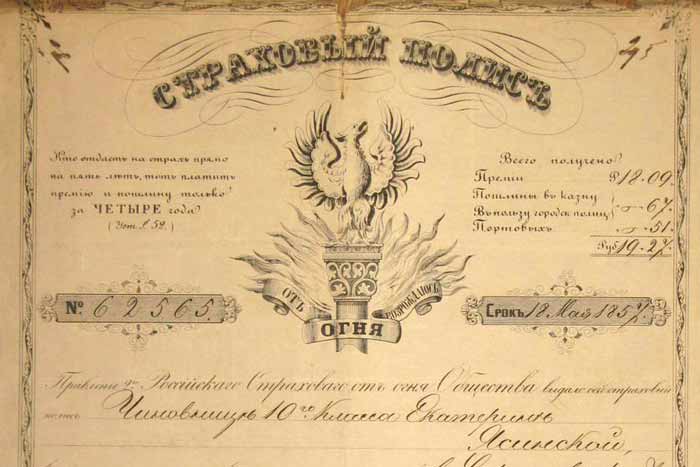 СТРАХОВЫЙ ПОЛИСЪ
Кто отдастъ на страхъ прямо
на пять лѣтъ, тотъ платитъ
премію и пошлину только
за ЧЕТЫРЕ года
Всего получено
Преміи Р18.09.
Пошлины въ казну „—67.
Въ пользу городск. полиц.
Портовыхъ „—51.
Руб 19.27.
№ 62565.
ОТЪ ОГНЯ ВОЗРОЖДАЮСЬ
СРОКЪ 18 Мая 1857.
Правленіе 2го Россійскаго Страховаго отъ огня Общества выдало сей страховый
полисъ Чиновницѣ 10го Класса Екатеринѣ
Ясинской,